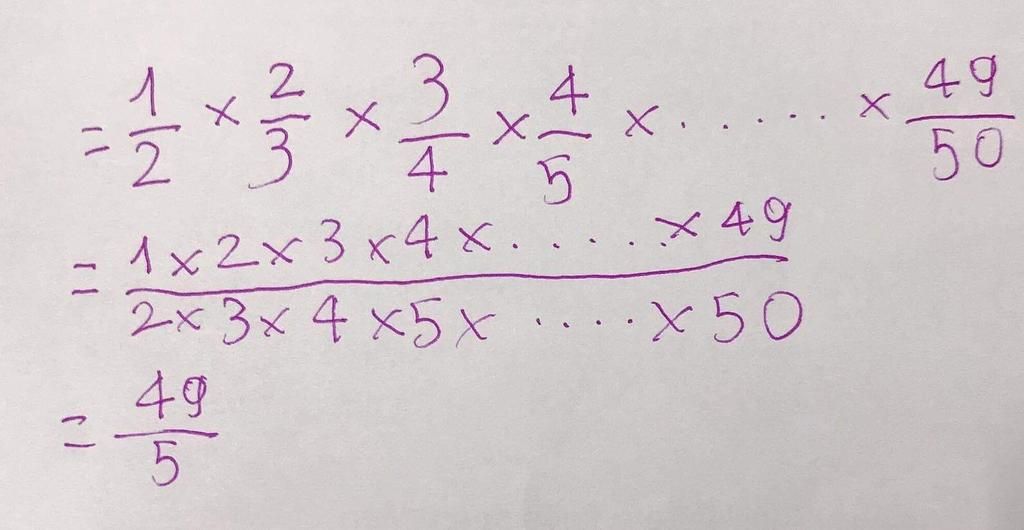 = 1/2 × 2/3 × 3/4 × 4/5 × ...... × 49/50
= 1×2×3×4×......×49 / 2×3×4×5×.....×50
= 49/5